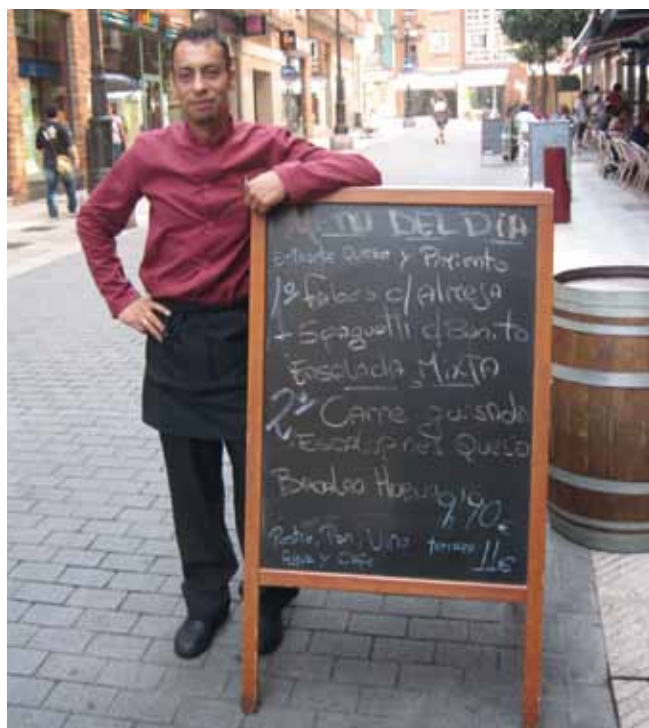 MENU DEL DÍA
Entrante Queso y Pimiento
1º Fabes c/ Almeja
- Spaguetti c/ Bonito
Ensalada Mixta
2º Carne guisada
Escalopines Queso
Bacalao
9,90€
Postre, Pan, Vino terraza 11€
Agua y Café